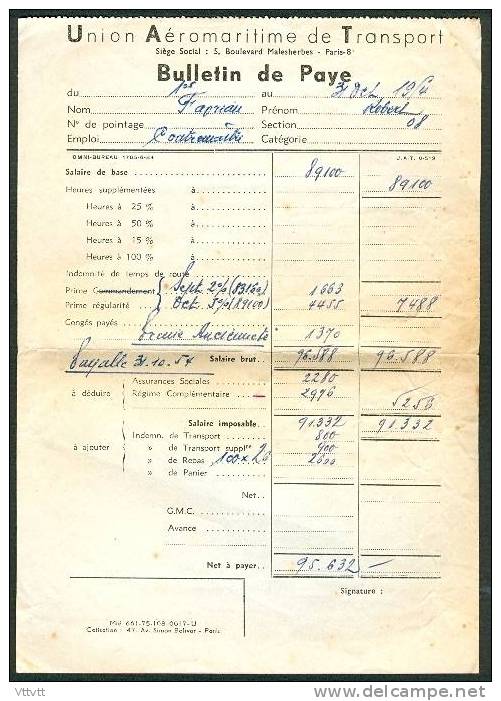 Union Aéromaritime de Transport
Siège Social : 5, Boulevard Malesherbes - Paris-8e
Bulletin de Paye
du 1er au 31 Oct 1954
Nom Prénom Robert
N° de pointage Section 08
Emploi Contremaître Catégorie
OMNI-BUREAU J.A.T. 0-519
Salaire de base 89100
Heures supplémentées à 89100
Heures à 25 % à
Heures à 50 % à
Heures à 15 % à
Heures à 100 % à
Indemnité de temps de route
Prime Commandement Sept 2% (83160) 1663
Prime régularité Oct. 5% (89100) 4455 7488
Congés payés
Prime Ancienneté 1370
Payable 31.10.54 Salaire brut 96.588 96.588
Assurances Sociales 2280
à déduire Régime Complémentaire 2976 5256
Salaire imposable 91332 91.332
Indemn. de Transport 800
à ajouter » de Transport supplre 900
» de Repas 100 x 26 2600
» de Panier
Net
G.M.C.
Avance
Net à payer 95.632 —
Signature :
Mle 661.75-108 0617-U
Collection : 47, Av. Simon Bolivar - Paris
Vttvtt
www.delcampe.net